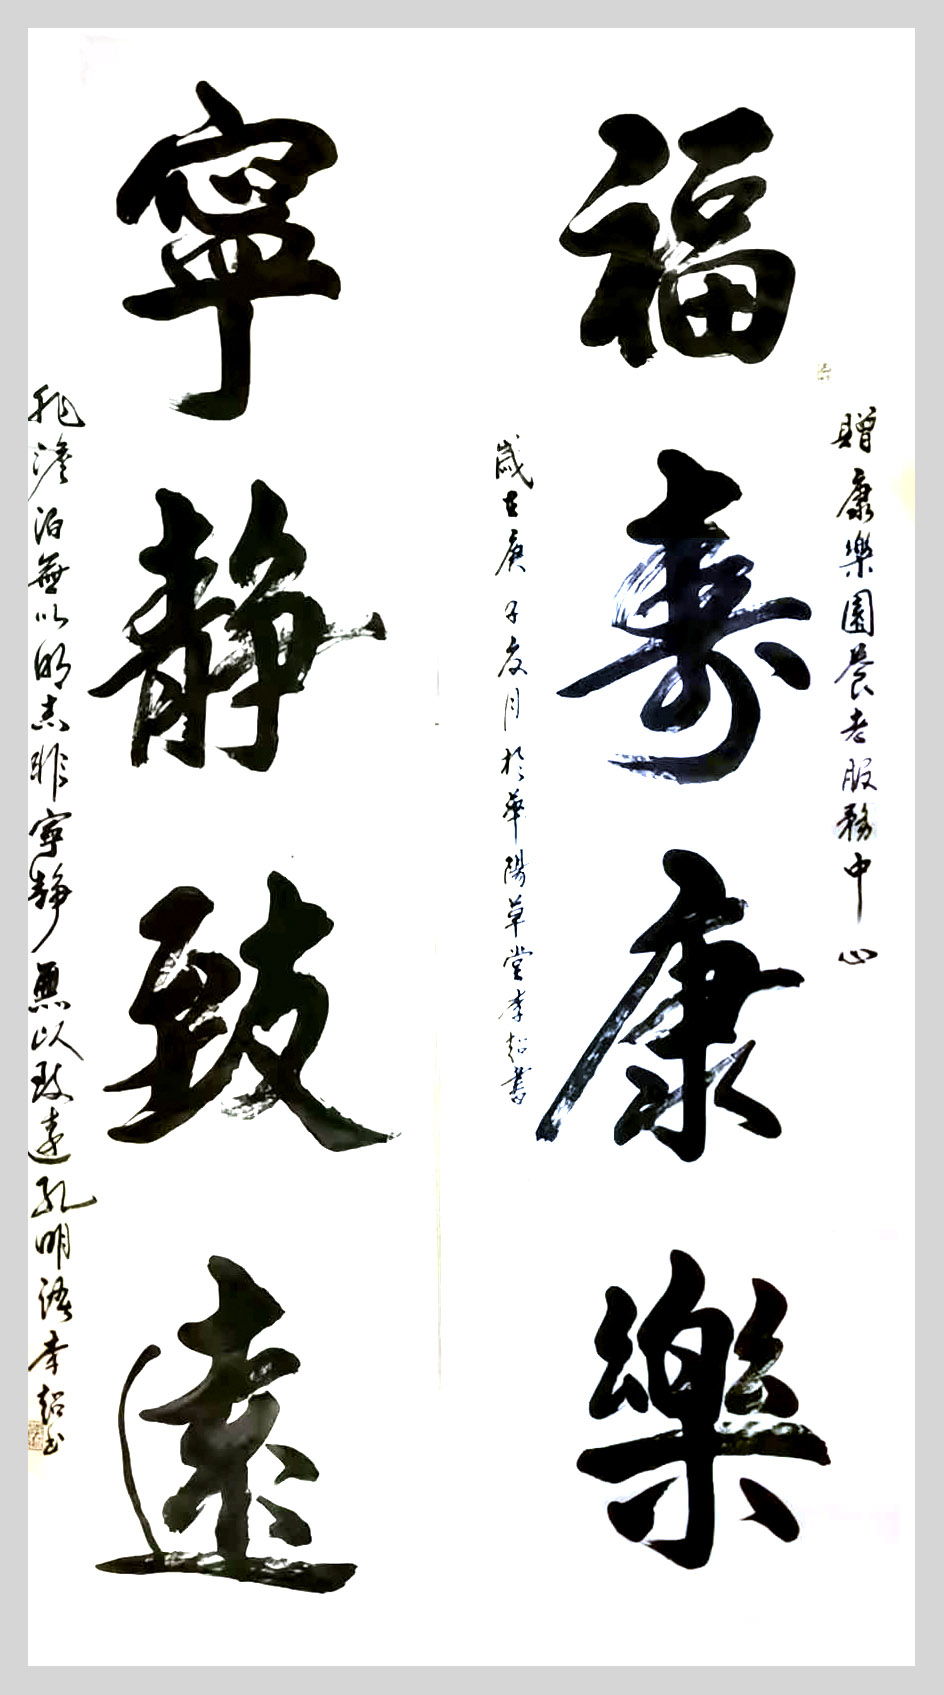 贈康樂園養老服務中心
福壽康樂
歲在庚子友月於華陽草堂李超書
寧靜致遠
非澹泊無以明志非寧静無以致遠孔明語李超书